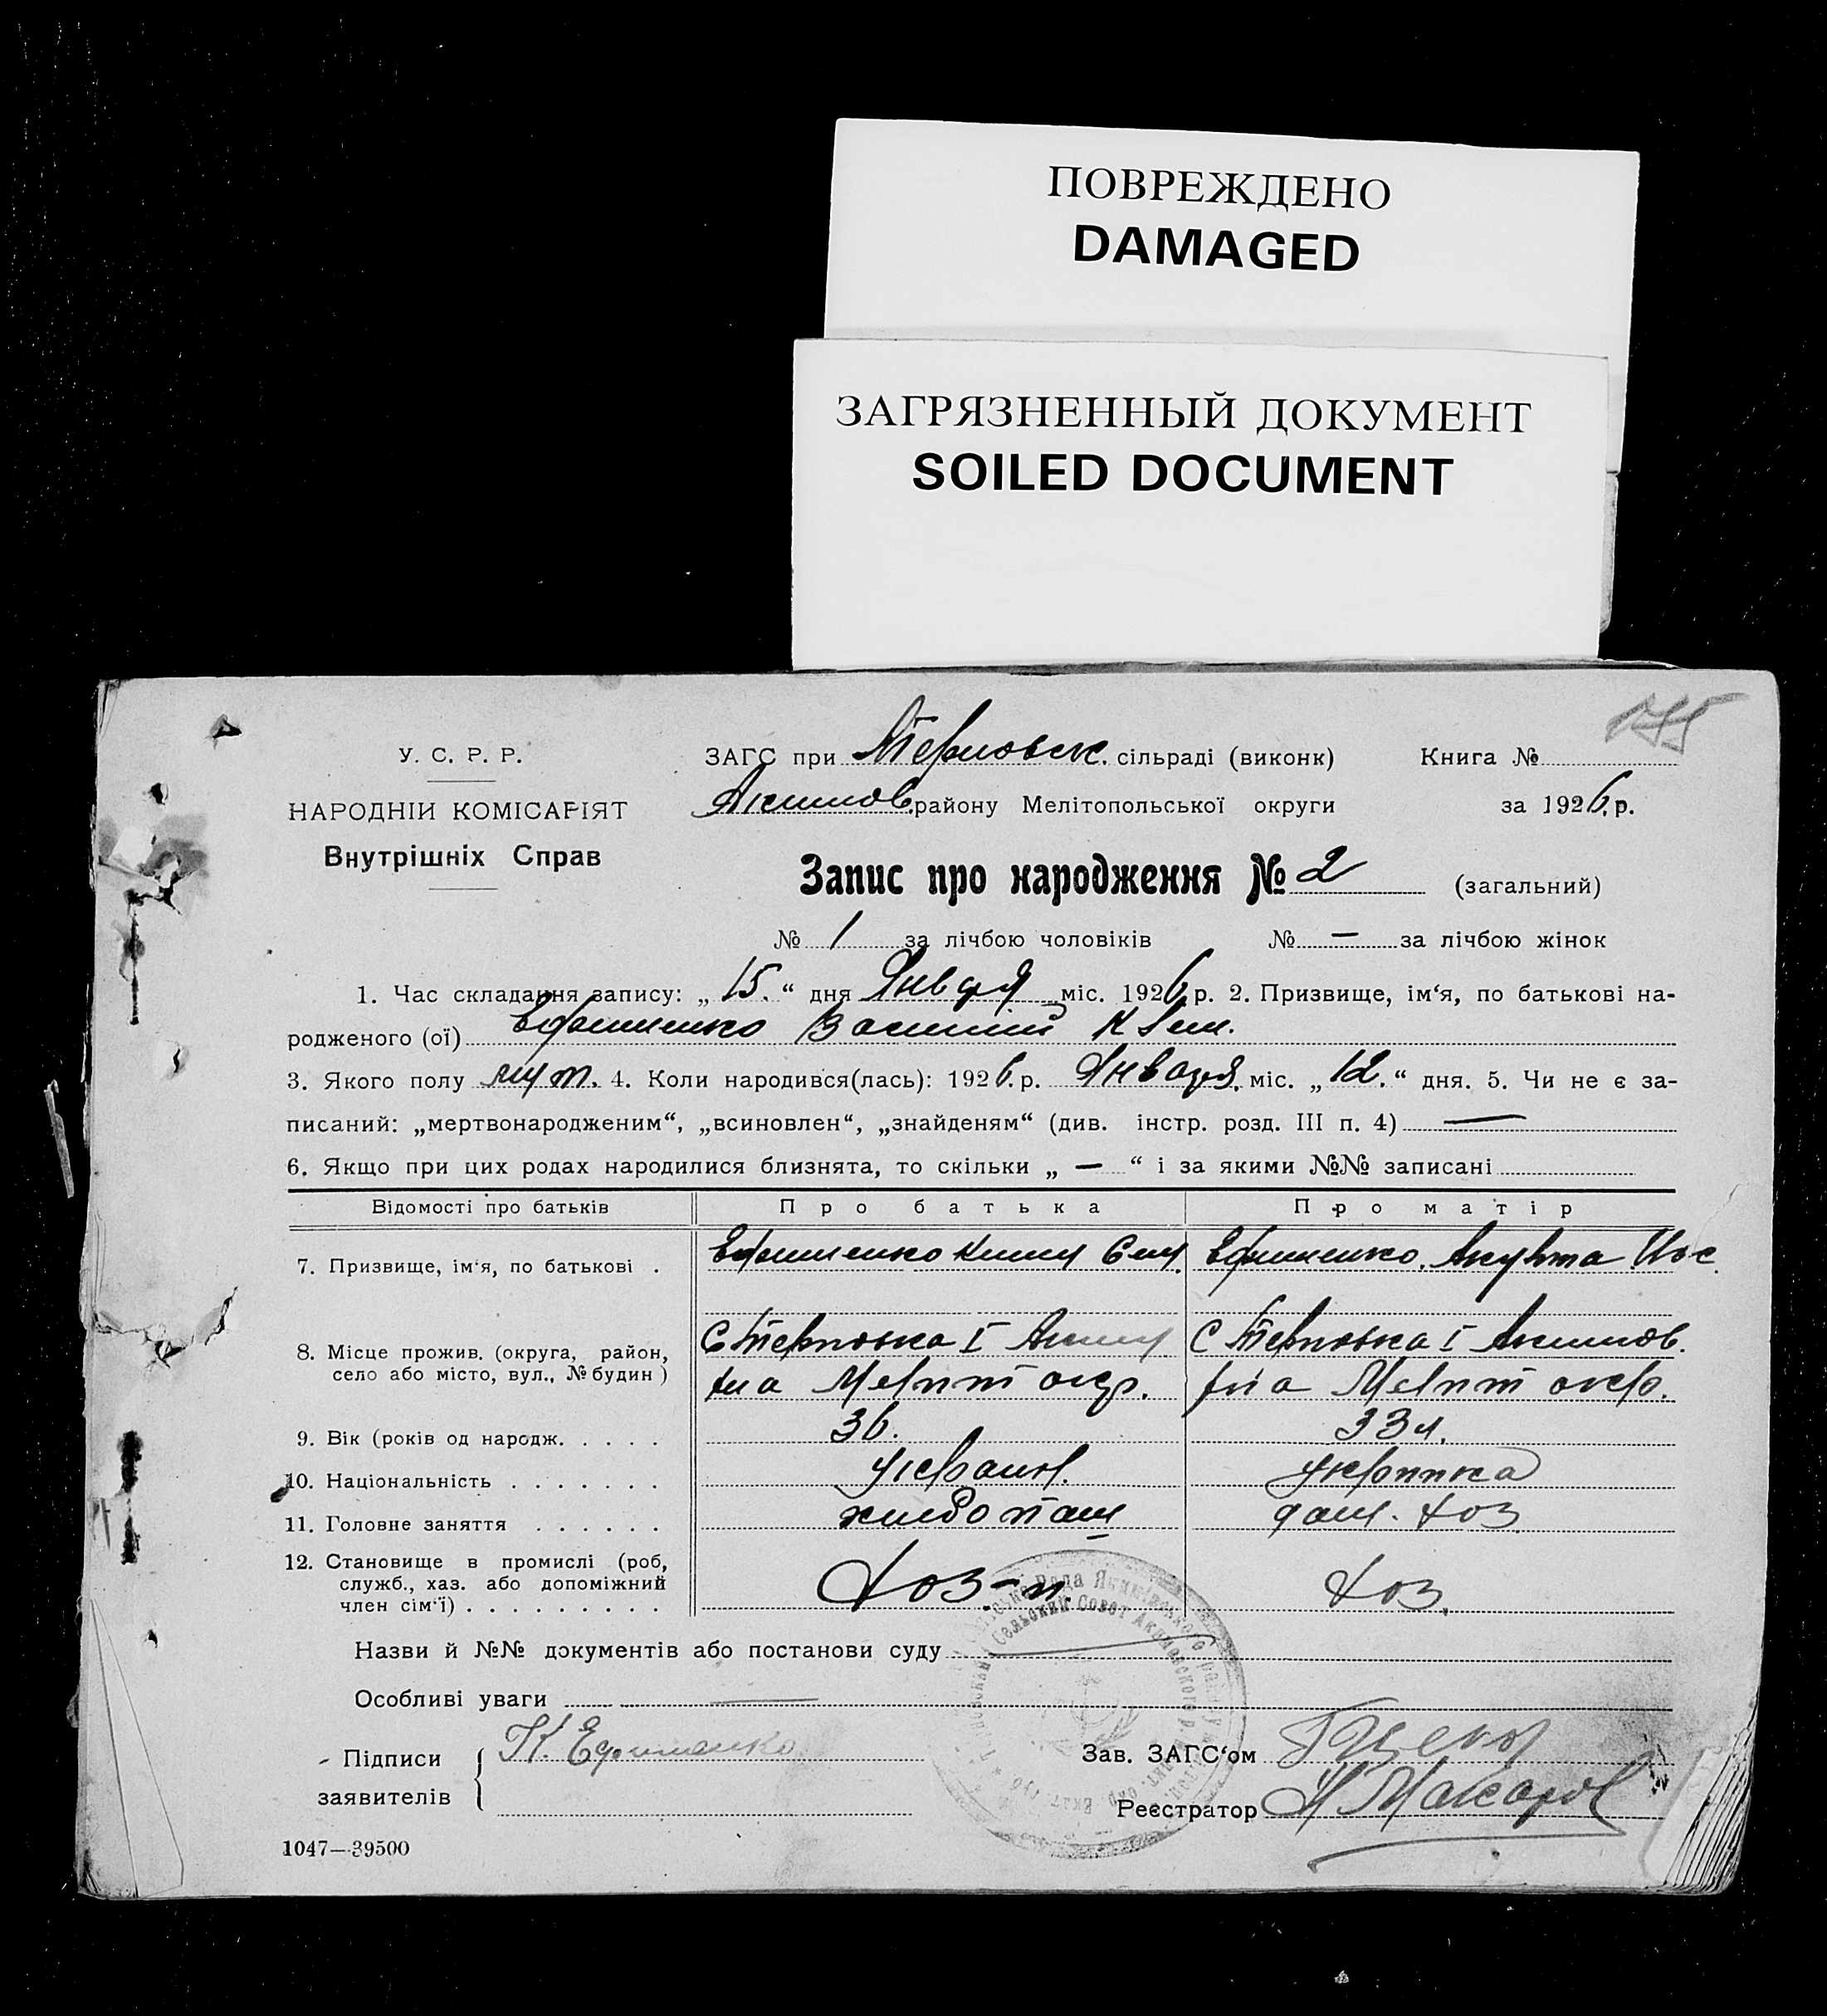 ПОВРЕЖДЕНО
DAMAGED
ЗАГРЯЗНЕННЫЙ ДОКУМЕНТ
SOILED DOCUMENT
У. С. Р. Р.
НАРОДНІЙ КОМІСАРІЯТ
Внутрішніх Справ
ЗАГС при Терновск. сільраді (виконк)
Книга №
Акимов. району Мелітопольської округи
за 1926 р.
Запис про народження № 2 (загальний)
№ 1 за лічбою чоловіків № — за лічбою жінок
1. Час складання запису: „15.“ дня Января міс. 1926 р. 2. Призвище, ім‘я, по батькові на-
родженого (ої) Ефименко Василий
3. Якого полу муж. 4. Коли народився(лась): 1926 р. Января. міс. „12.“ дня. 5. Чи не є за-
писаний: „мертвонародженим“, „всиновлен“, „знайденям“ (див. інстр. розд. III п. 4) —
6. Якщо при цих родах народилися близнята, то скільки „—“ і за якими №№ записані
Відомості про батьків Про батька Про матір
7. Призвище, ім‘я, по батькові . Ефименко Ефименко.
8. Місце прожив. (округа, район,
село або місто, вул., № будин)
С Терновка I Аким С Терновка I Акимов.
Мелит окр. Мелит окр.
9. Вік (років од народж. . . . . 36. 33 л.
10. Національність . . . . . . . Украин. Украинка
11. Головне заняття . . . . . . хлебопаш дом. хоз
12. Становище в промислі (роб,
служб., хаз. або допоміжний
член сім‘ї) . . . . . . . . . хоз-н. хоз.
Назви й №№ документів або постанови суду
Особливі уваги
Підписи
заявителів
К. Ефименко
Зав. ЗАГС‘ом
Реєстратор Макаров
1047—39500